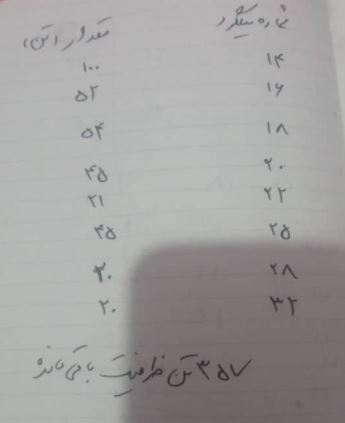 شماره میلگرد مقدار (تن)
۱۴ ۱۰۰
۱۶ ۵۲
۱۸ ۵۴
۲۰ ۴۵
۲۲ ۲۱
۲۵ ۴۵
۲۸ ۲۰
۳۲ ۲۰
۳۵۷ تن ظرفیت باقی مانده